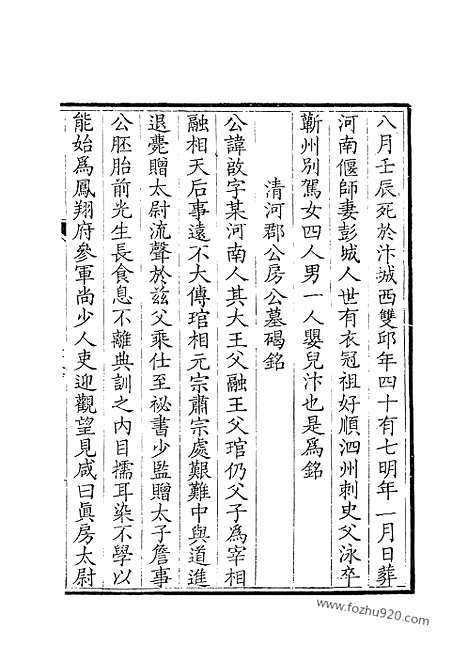 八月壬辰死於汴城西雙邱年四十有七明年一月日葬
河南偃師妻彭城人世有衣冠祖好順泗州刺史父泳卒
蘄州別駕女四人男一人嬰兒汴也是爲銘
清河郡公房公墓碣銘
公諱啟字某河南人其大王父融王父琯仍父子爲宰相
融相天后事遠不大傳琯相元宗肅宗處艱難中與道進
退薨贈太尉流聲於兹父乘仕至祕書少監贈太子詹事
公胚胎前光生長食息不離典訓之内目擩耳染不學以
能始爲鳳翔府參軍尚少人吏迎觀望見咸曰眞房太尉
www.fozhu920.com